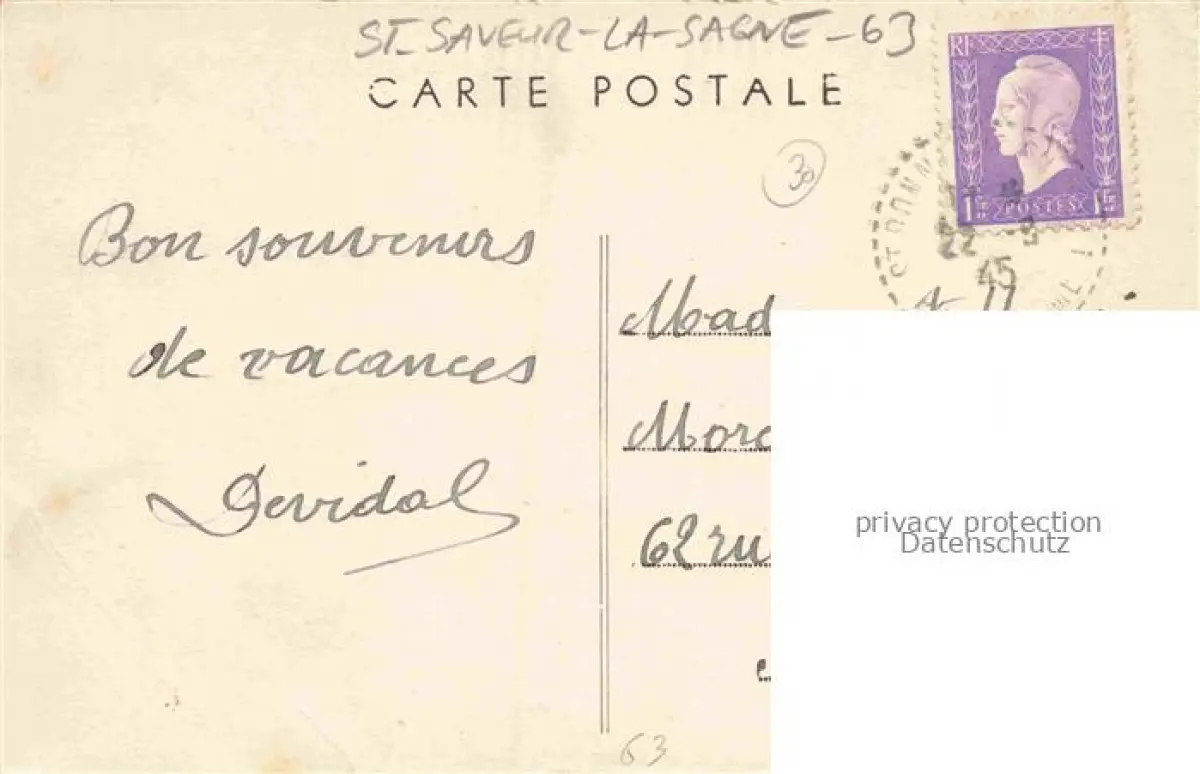 ST-SAVEUR-LA-SAGNE-63
CARTE POSTALE
RF
1F 1F
POSTES
30
22
45
Bon souvenirs
de vacances
Devidal
Mad
Morc
62 ru
privacy protection
Datenschutz
63